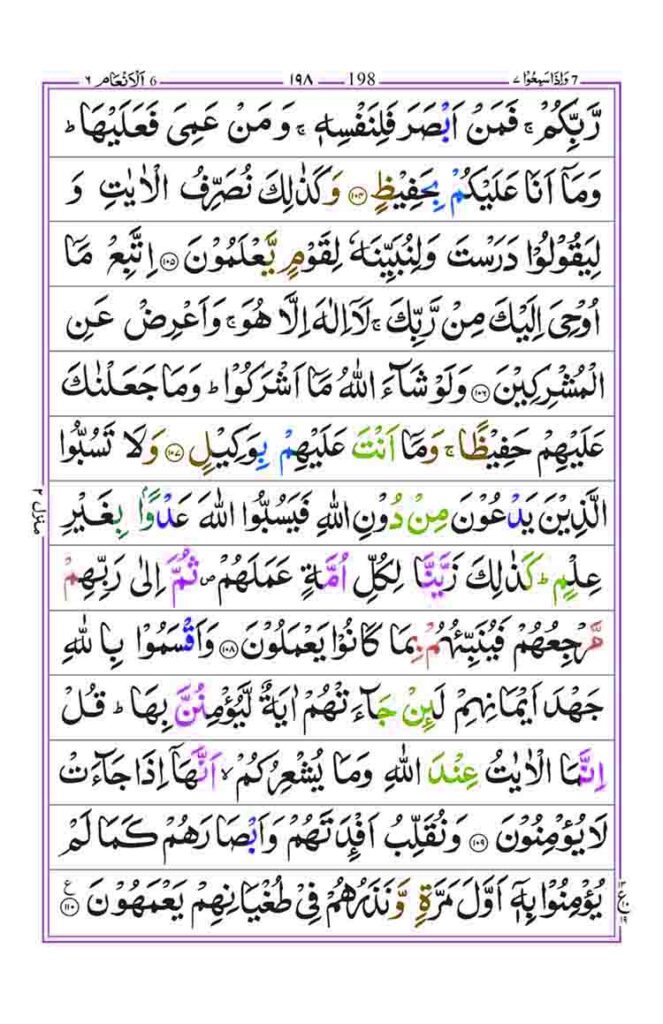 وَاِذَا سَمِعُوْا ٧ 7 198 ١٩٨ اَلْاَنْعَام ٦ 6
رَّبِّكُمْ ۚ فَمَنْ اَبْصَرَ فَلِنَفْسِهٖ ۚ وَ مَنْ عَمِیَ فَعَلَیْهَا ؕ
وَمَاۤ اَنَا عَلَیْكُمْ بِحَفِیْظٍ ۝۱۰۴ وَكَذٰلِكَ نُصَرِّفُ الْاٰیٰتِ وَ
لِیَقُوْلُوْا دَرَسْتَ وَلِنُبَیِّنَهٗ لِقَوْمٍ یَّعْلَمُوْنَ ۝۱۰۵ اِتَّبِعْ مَاۤ
اُوْحِیَ اِلَیْكَ مِنْ رَّبِّكَ ۚ لَاۤ اِلٰهَ اِلَّا هُوَ ۚ وَاَعْرِضْ عَنِ
الْمُشْرِكِیْنَ ۝۱۰۶ وَلَوْ شَآءَ اللّٰهُ مَاۤ اَشْرَكُوْا ؕ وَمَا جَعَلْنٰكَ
عَلَیْهِمْ حَفِیْظًا ۚ وَمَاۤ اَنْتَ عَلَیْهِمْ بِوَكِیْلٍ ۝۱۰۷ وَلَا تَسُبُّوا
الَّذِیْنَ یَدْعُوْنَ مِنْ دُوْنِ اللّٰهِ فَیَسُبُّوا اللّٰهَ عَدْوًۢا بِغَیْرِ
عِلْمٍ ؕ كَذٰلِكَ زَیَّنَّا لِكُلِّ اُمَّةٍ عَمَلَهُمْ ۪ ثُمَّ اِلٰی رَبِّهِمْ
مَّرْجِعُهُمْ فَیُنَبِّئُهُمْ بِمَا كَانُوْا یَعْمَلُوْنَ ۝۱۰۸ وَاَقْسَمُوْا بِاللّٰهِ
جَهْدَ اَیْمَانِهِمْ لَىِٕنْ جَآءَتْهُمْ اٰیَةٌ لَّیُؤْمِنُنَّ بِهَا ؕ قُلْ
اِنَّمَا الْاٰیٰتُ عِنْدَ اللّٰهِ وَمَا یُشْعِرُكُمْ ۙ اَنَّهَاۤ اِذَا جَآءَتْ
لَا یُؤْمِنُوْنَ ۝۱۰۹ وَنُقَلِّبُ اَفْـِٕدَتَهُمْ وَاَبْصَارَهُمْ كَمَا لَمْ
یُؤْمِنُوْا بِهٖۤ اَوَّلَ مَرَّةٍ وَّنَذَرُهُمْ فِیْ طُغْیَانِهِمْ یَعْمَهُوْنَ ۝۱۱۰
منزل ۲
ع